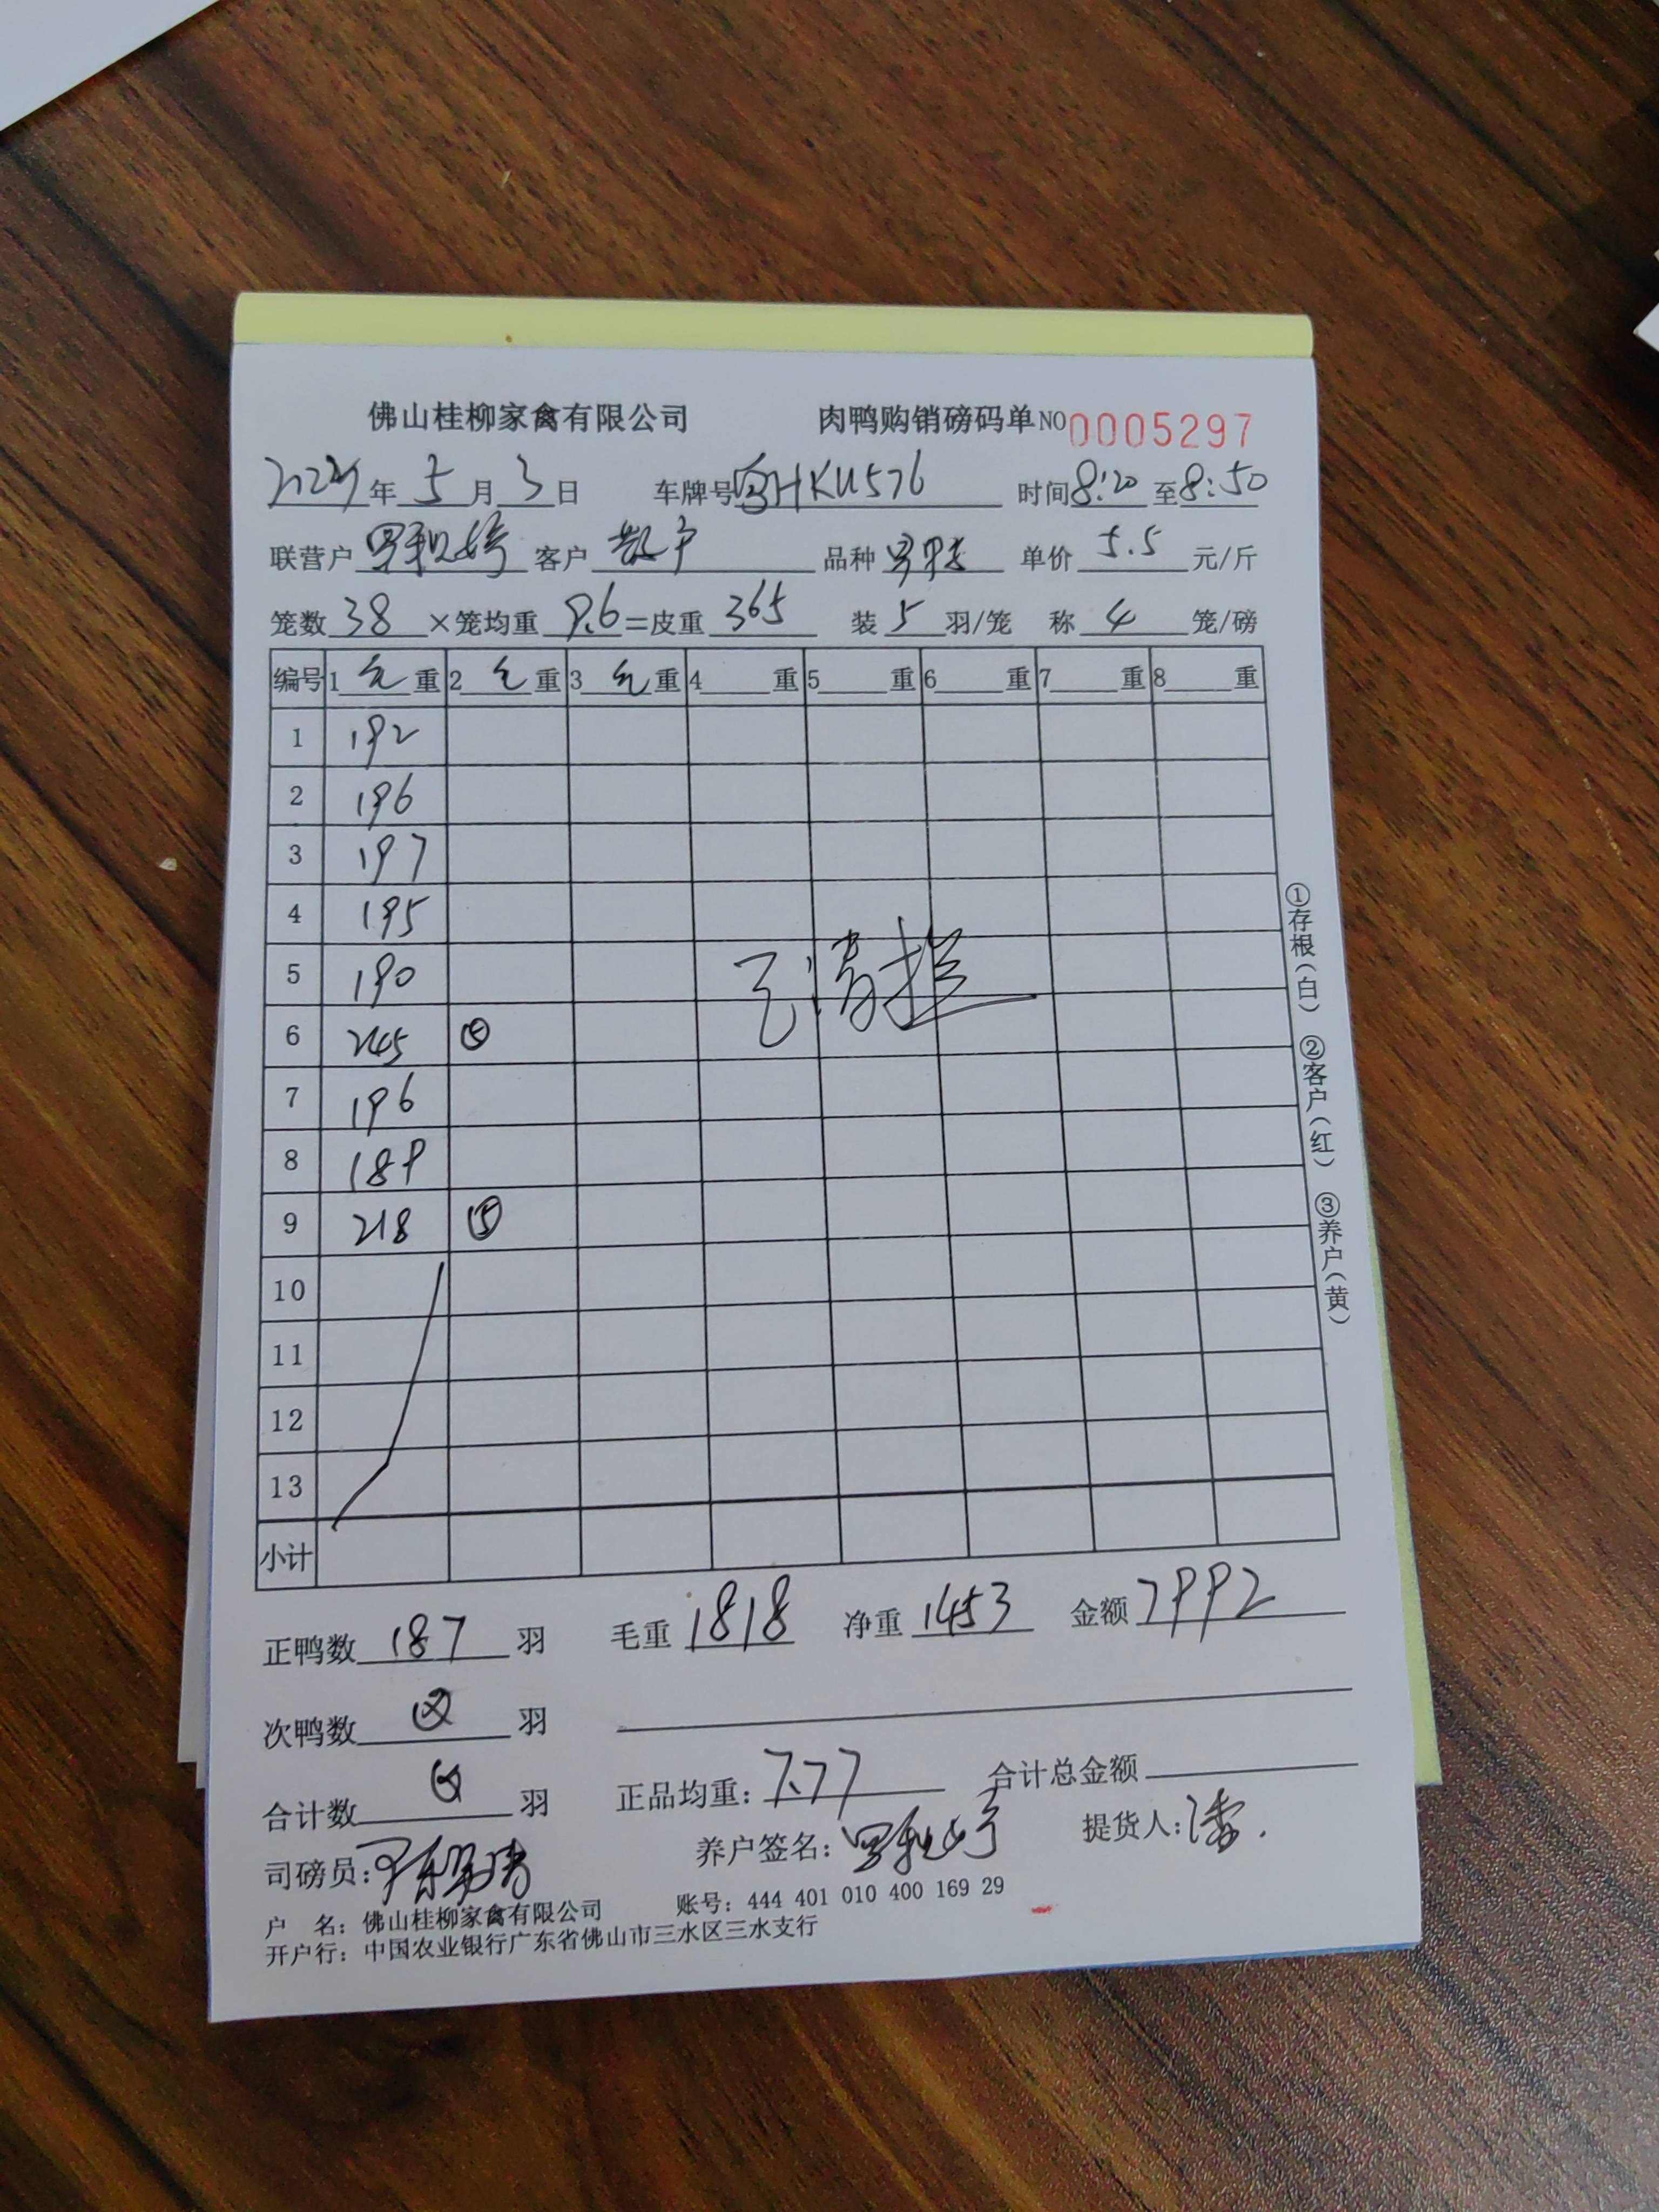 佛山桂柳家禽有限公司 肉鸭购销磅码单 NO 0005297
年 5 月 3 日 车牌号 HKU576 时间 8:20 至 8:50
联营户 客户 散户 品种 单价 5.5 元/斤
笼数 38 ×笼均重 9.6 =皮重 365 装 5 羽/笼 称 4 笼/磅
编号 1 重 2 重 3 重 4 重 5 重 6 重 7 重 8 重
1 192
2 196
3 197
4 195
5 190
6 245 ⑤
7 196
8 189
9 218
10
11
12
13
小计
正鸭数 187 羽 毛重 1818 净重 1453 金额 7992
次鸭数 羽
合计数 羽 正品均重: 7.77 合计总金额
司磅员: 养户签名: 提货人:
户 名: 佛山桂柳家禽有限公司 账号: 444 401 010 400 169 29
开户行: 中国农业银行广东省佛山市三水区三水支行
①存根(白) ②客户(红) ③养户(黄)